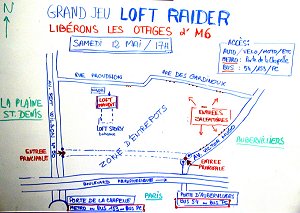 GRAND JEU LOFT RAIDER
LIBÉRONS LES OTAGES d'M6
SAMEDI 12 MAI / 17H
N
ACCÈS:
AUTO/VELO/MOTO/ETC
METRO: Porte de la Chapelle
BUS: 54/153/PC
RUE PROUDHON
AVE DES GARDINOUX
LA PLAINE
ST. DENIS
LOFT
LOFT STORY
ENTRÉES
SALVATAIRES
ZONE D'ENTREPOTS
AVE VICTOR HUGO
AUBERVILLIERS
ENTRÉE
PRINCIPALE
ENTRÉE
PRINCIPALE
BOULEVARD PERIPHERIQUE
PARIS
PORTE DE LA CHAPELLE
METRO ou BUS 153 ou BUS PC
PORTE D'AUBERVILLIERS
BUS 54 ou BUS PC